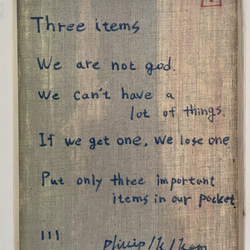 Three items
We are not god.
We can't have a
lot of things.
If we get one, we lose one
Put only three important
items in our pocket